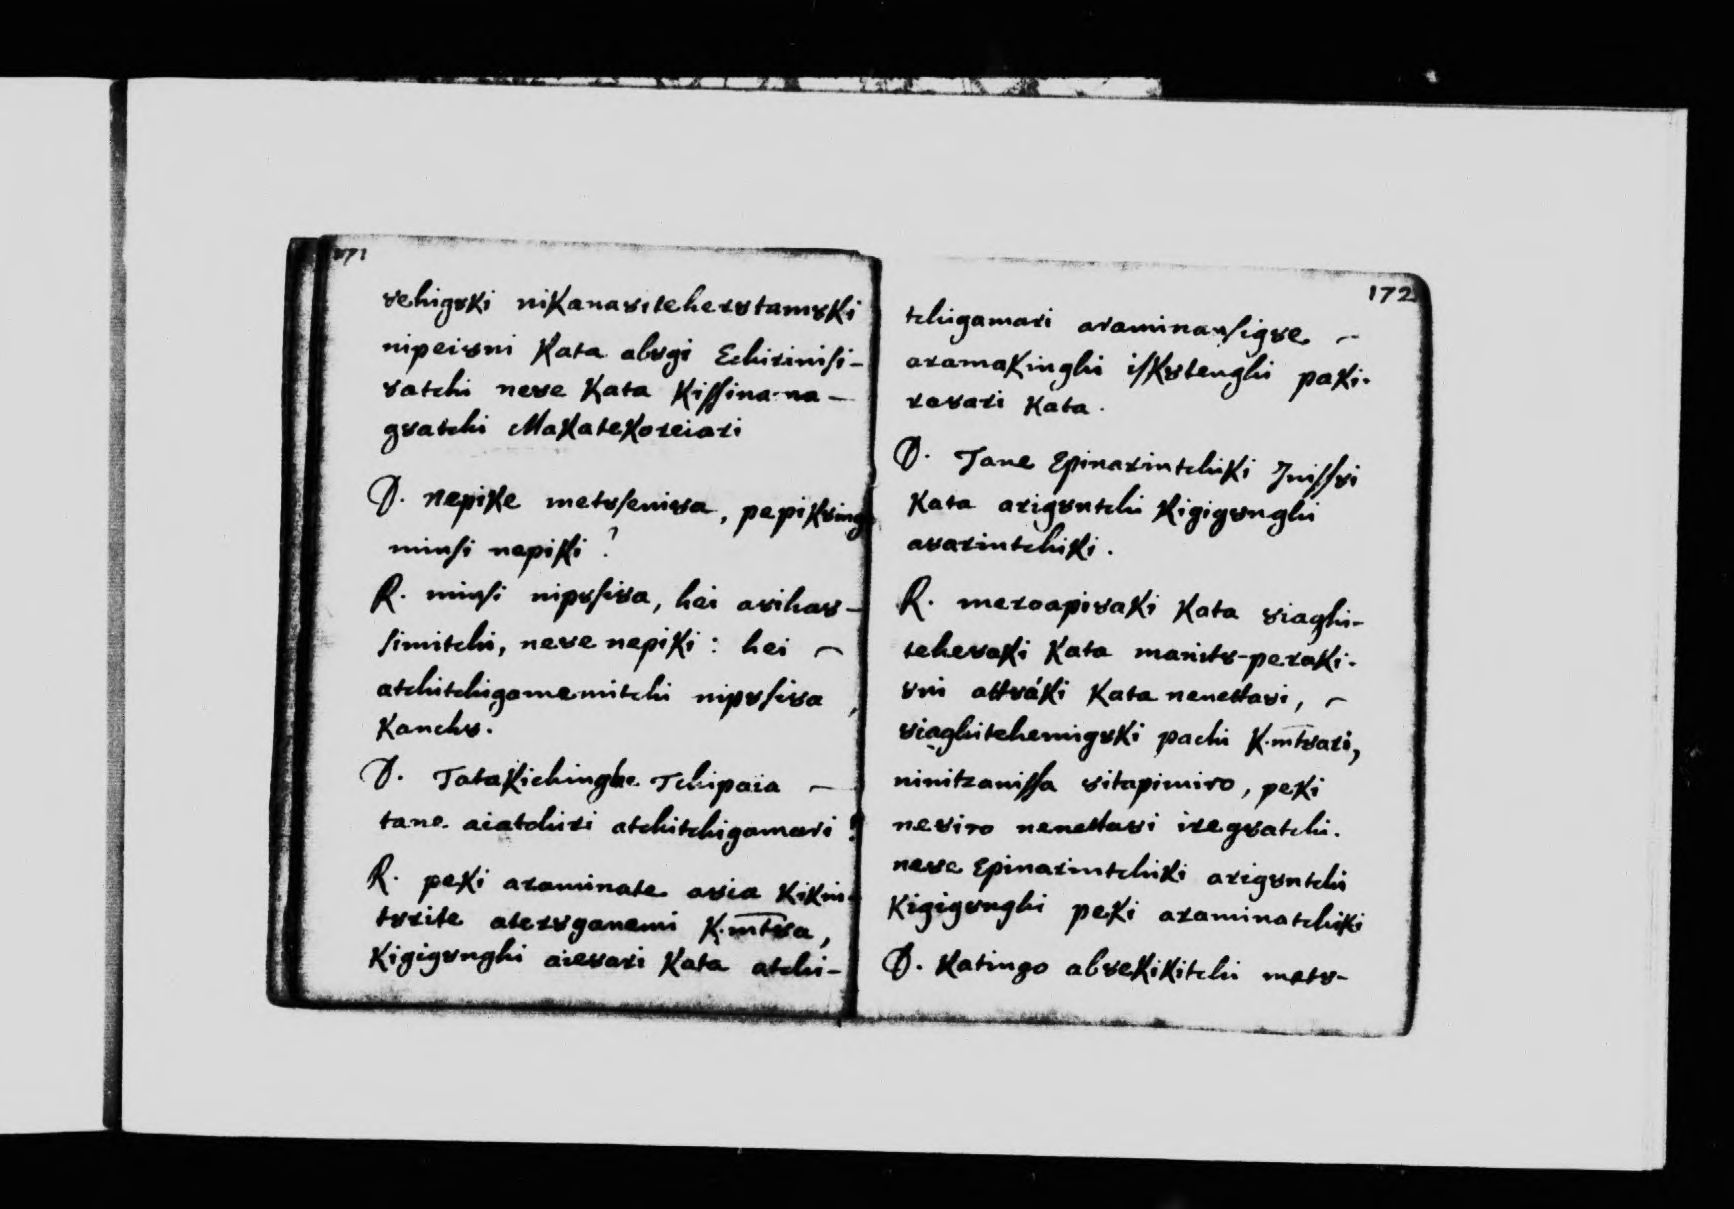 171
8ehig8ki nikana8iteher8tam8ki
nipei8ni Kata ab8gi Echirinisi-
8atchi ne8e Kata Kissina-na-
g8atchi Makatekoreiari
D. nepike met8seni8a, pepik8ing
minsi nepiki?
R. minsi nip8si8a, hei a8iha8-
simitchi, ne8e nepiki: hei
atchitchigamemitchi nip8si8a,
Kanch8.
D. Tatakichinghe Tchipaïa
tane aiatchiri atchitchigamari?
R. peki araminate a8ia Kikin-
t8rite ater8ganemi K.mt8a,
Kigig8nghi aie8ari Kata atchi-
172
tchigamari araminansig8e
aramakinghi isk8tenghi paki-
ro8ari Kata.
D. Tane Epinarintchiki Iniss8i
Kata arig8ntchi Kigig8nghi
a8arintchiki.
R. meroapi8aki Kata 8iaghi-
tehe8aki Kata manit8-peraki-
8ni att8áki Kata nenetta8i,
8iaghitehemig8ki pachi K.mt8ari,
ninitzanissa 8itapimiro, peki
ne8iro nenetta8i ireg8atchi.
ne8e Epinarintchiki arig8ntchi
Kigig8nghi peki araminatchiki
D. Katingo ab8ekikitchi met8-